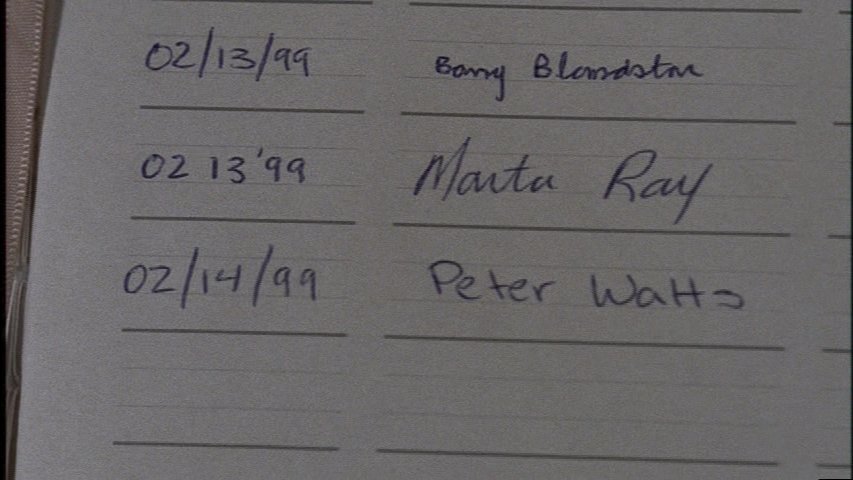 02/13/99 Barry
02 13'99 Marta Ray
02/14/99 Peter Watts